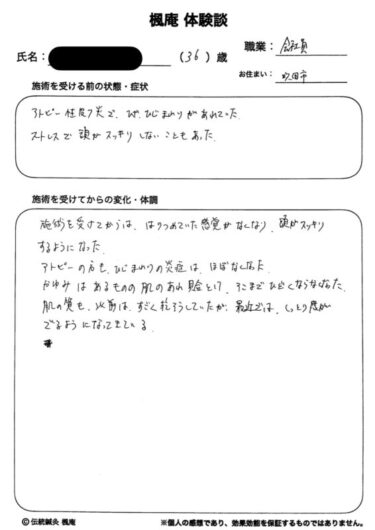 楓庵 体験談
氏名：（36）歳
職業：会社員
お住まい：吹田市
施術を受ける前の状態・症状
アトピー性皮フ炎で、ひじまわりがあれていた。
ストレスで頭がスッキリしないこともあった。
施術を受けてからの変化・体調
施術を受けてからは、はりつめていた感覚がなくなり、頭がスッキリ
するようになった。
アトピーの方も、ひじまわりの炎症は、ほぼなくなった。
かゆみはあるものの肌のあれ具合といけ、そこまでひどくならなくなった。
肌の質も、以前は、すごく乾そうしていたが、最近では、しっとり感が
でるようになってきている。
© 伝統鍼灸 楓庵
※個人の感想であり、効果効能を保証するものではありません。